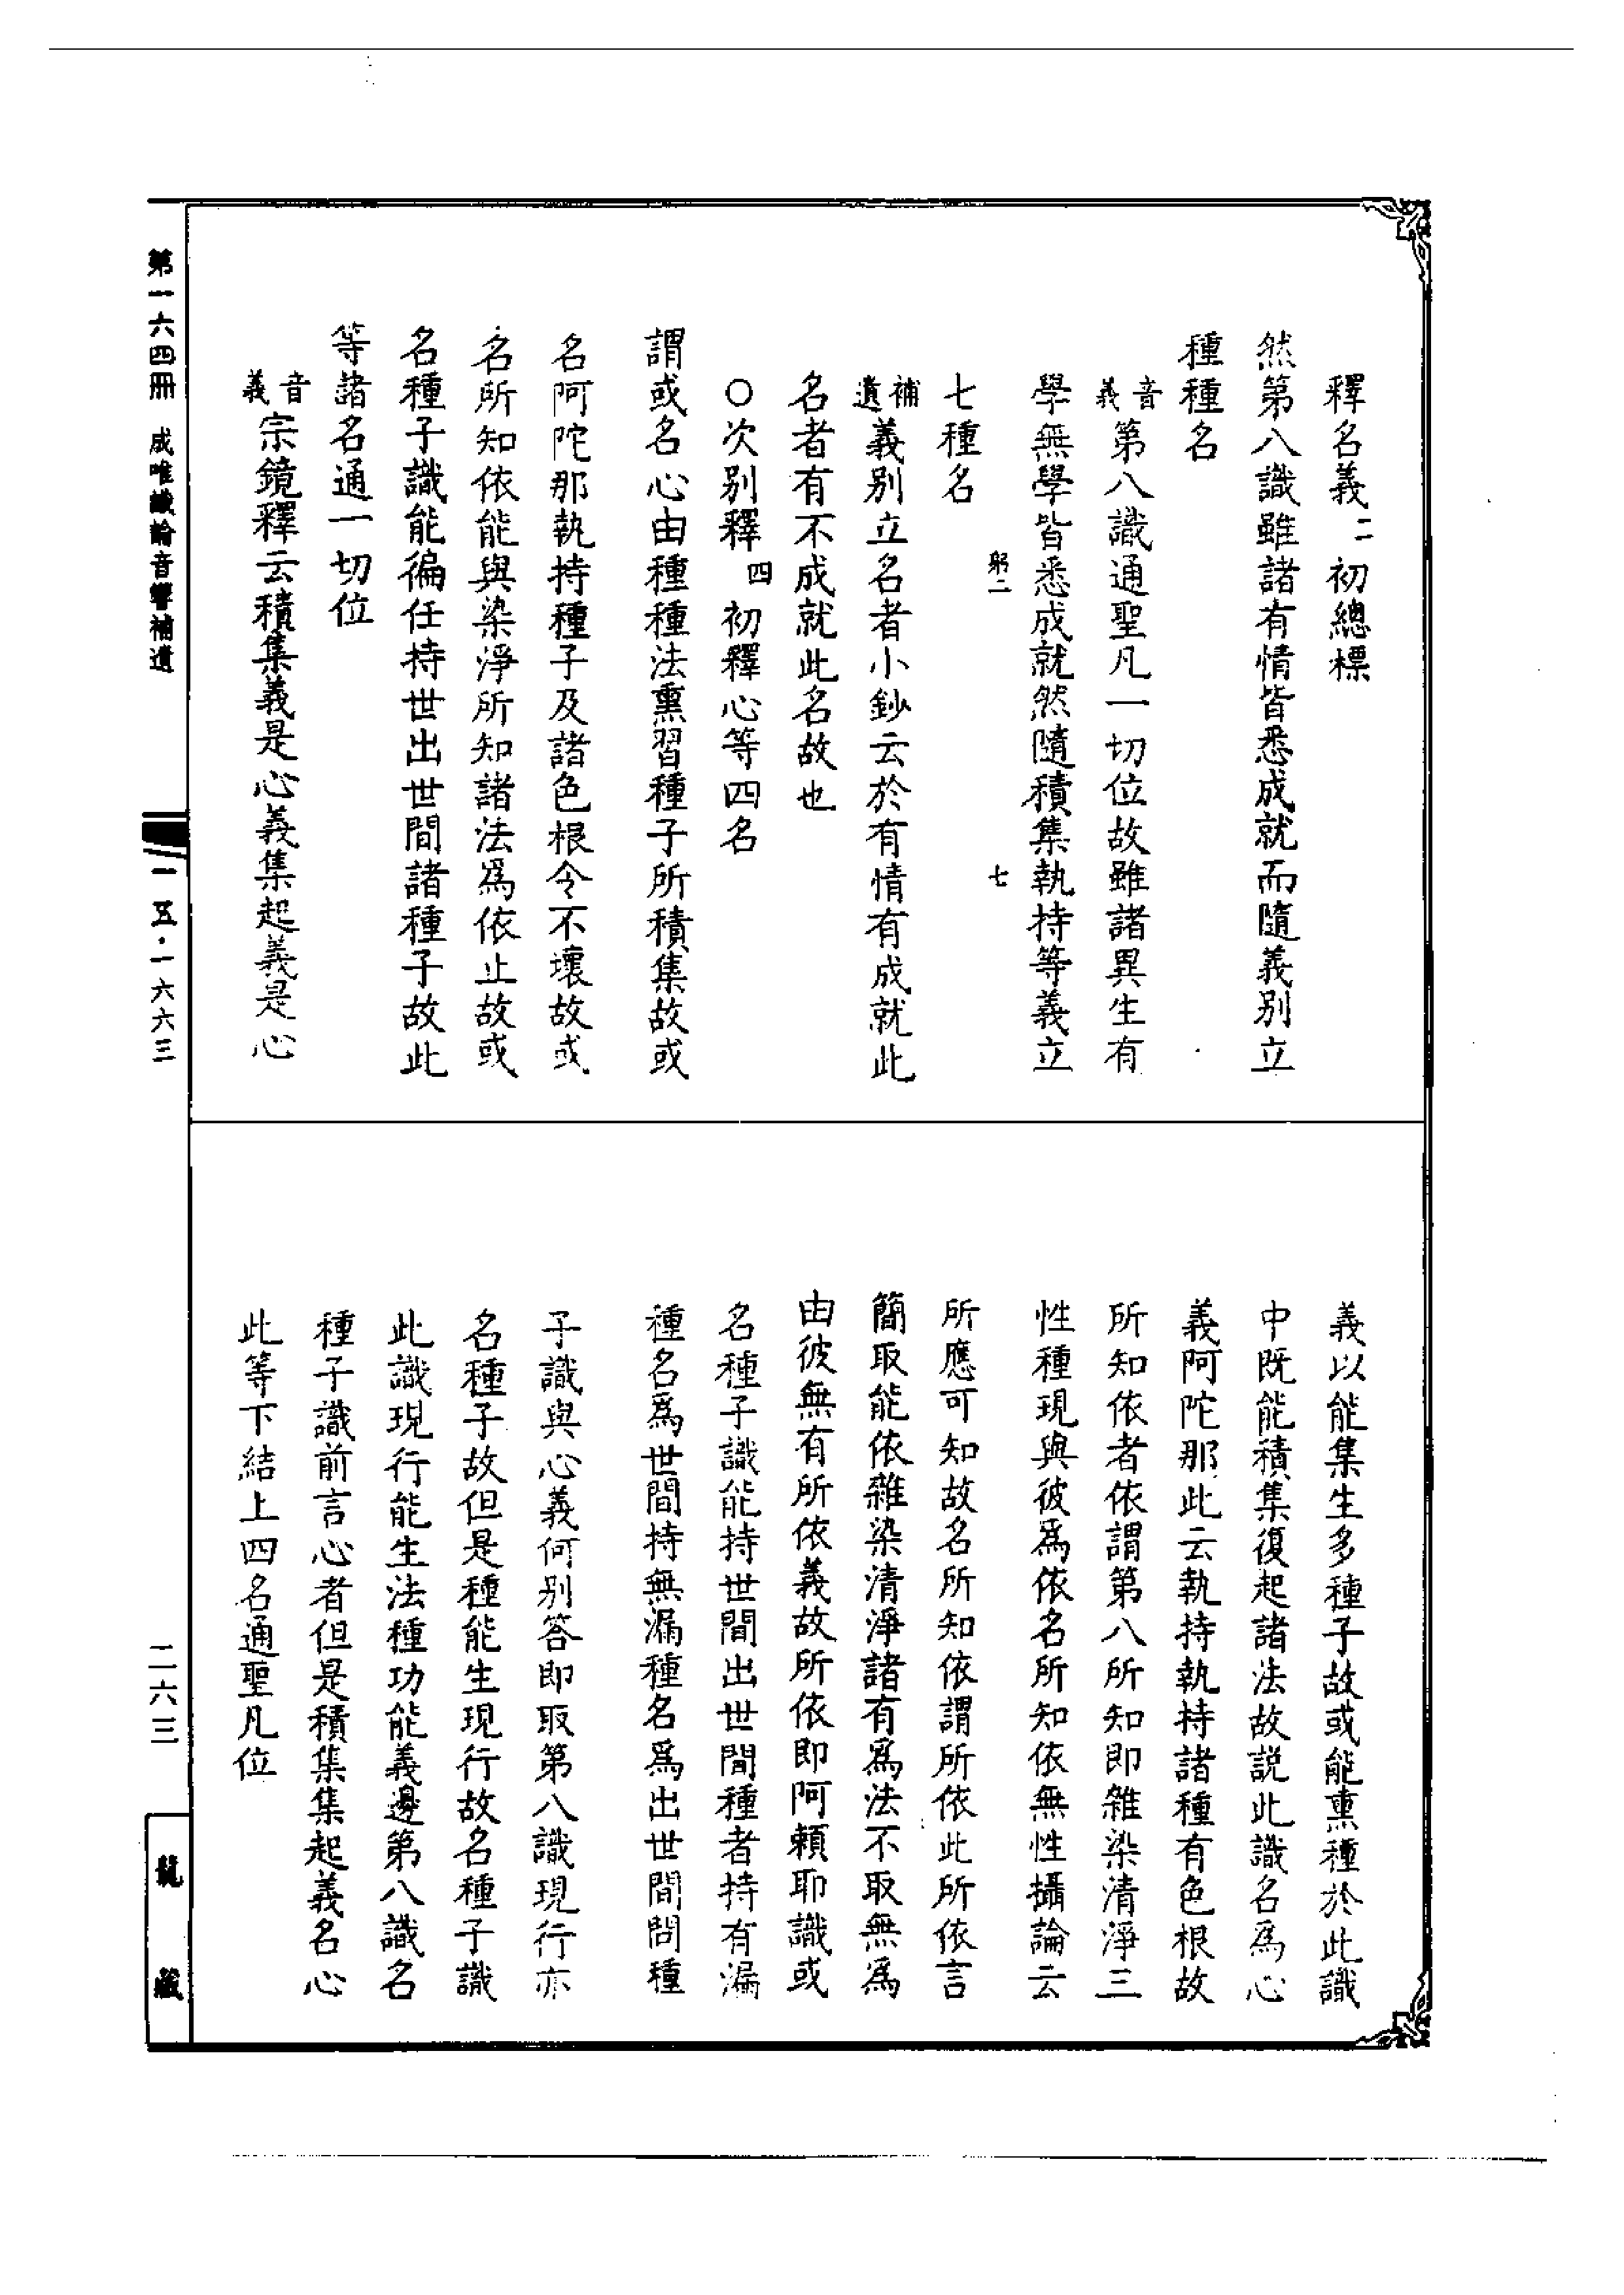 釋名義二初總標
然第八識雖諸有情皆悉成就而隨義別立
種種名
音義第八識通聖凡一切位故雖諸異生有
學無學皆悉成就然隨積集執持等義立
躬二 七
七種名
補遺義別立名者小鈔云於有情有成就此
名者有不成就此名故也
○次別釋四初釋心等四名
謂或名心由種種法熏習種子所積集故或
名阿陀那執持種子及諸色根令不壞故或
名所知依能與染淨所知諸法爲依止故或
名種子識能徧任持世出世間諸種子故此
等諸名通一切位
音義宗鏡釋云積集義是心義集起義是心
義以能集生多種子故或能熏種於此識
中既能積集復起諸法故説此識名為心
義阿陀那此云執持執持諸種有色根故
所知依者依謂第八所知即雜染清淨三
性種現與彼爲依名所知依無性攝論云
所應可知故名所知依謂所依此所依言
簡取能依雜染清淨諸有爲法不取無爲
由彼無有所依義故所依即阿賴耶識或
名種子識能持世間出世間種者持有漏
種名爲世間持無漏種名爲出世間問種
子識與心義何別答即取第八識現行亦
名種子故但是種能生現行故名種子識
此識現行能生法種功能義邊第八識名
種子識前言心者但是積集集起義名心
此等下結上四名通聖凡位
第一六四冊 成唯識論音響補遺
一一五·一六六三
二六三
龍藏